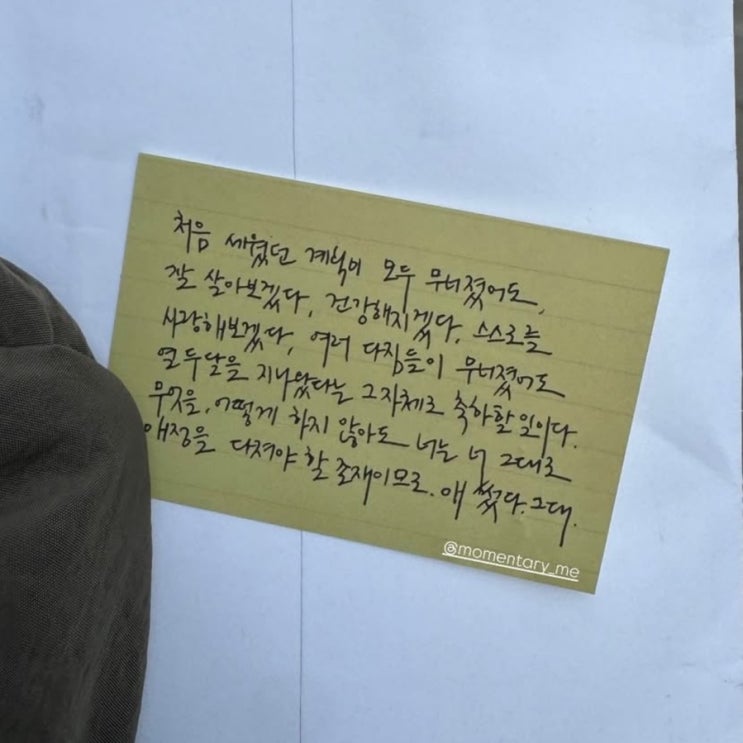 처음 세웠던 계획이 모두 무너졌어도,
잘 살아보겠다, 건강해지겠다, 스스로를
사랑해보겠다, 여러 다짐들이 무너졌어도
열두달을 지나왔다는 그 자체로 축하할 일이다.
무엇을, 어떻게 하지 않아도 너는 너 그대로
애정을 다져야 할 존재이므로. 애썼다. 그대.
@momentary_me